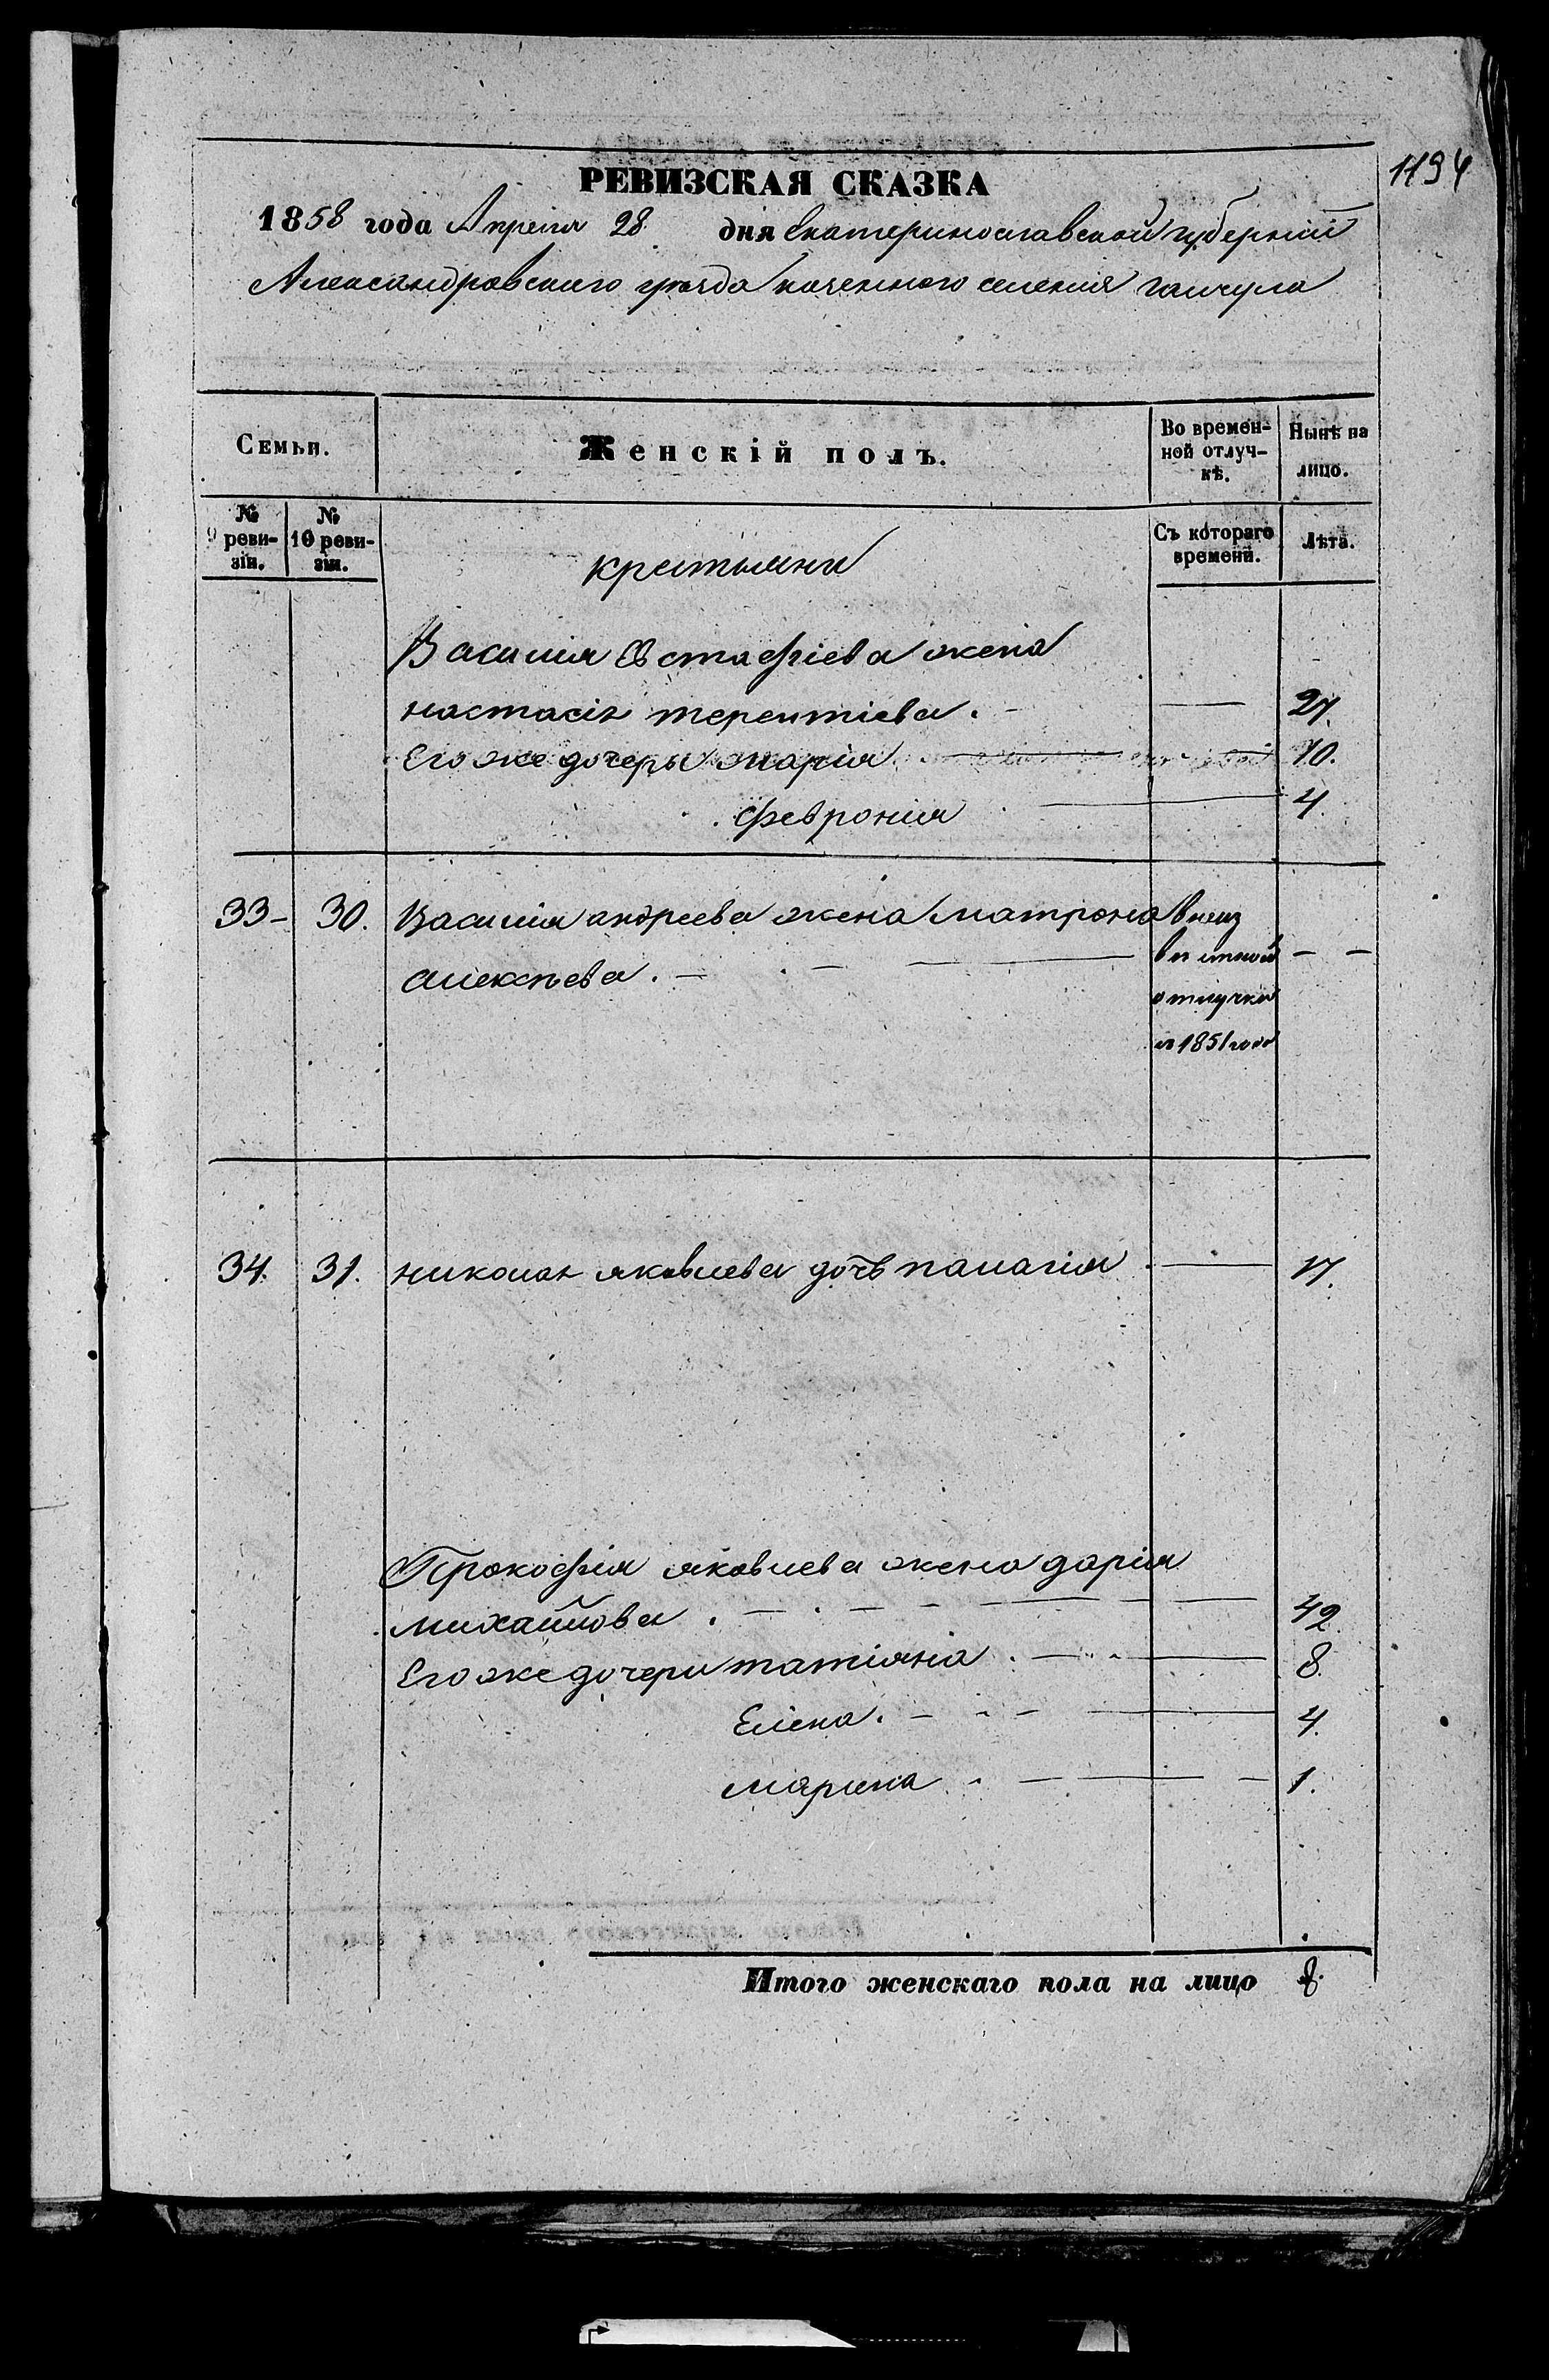 1194
РЕВИЗСКАЯ СКАЗКА
1858 года Апреля 28 дня Екатеринославской губерніи
Александровского уезда казенного селения гайчула
Семьи.
Женскій полъ.
Во времен-
ной отлуч-
кѣ.
Нынѣ на
лицо.
№
9 реви-
зіи.
№
10 реви-
зіи.
Съ котораго
времени.
Лѣта.
крестьяни
Василия Евстафіева жена
настасія терентіева. 27.
Его же дочеры мария 10.
феврония 4.
33 30. Василия андреева жена матрона
алексѣева.
отлучки
с 1851 года
34. 31. николая яковлева дочь палагия 17.
Прокофия яковлева жена дария
михайлова. 42.
Его же дочери татіяна. 8.
Елена. 4.
марина. 1.
Итого женскаго пола на лицо 8.